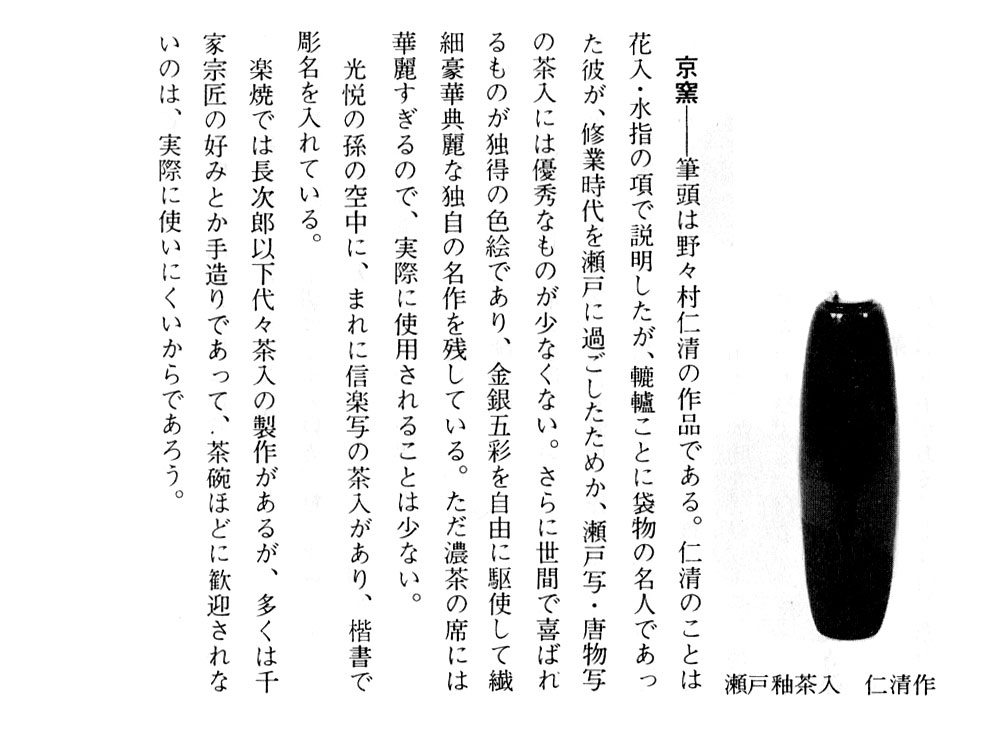 瀬戸釉茶入　仁清作
京窯――筆頭は野々村仁清の作品である。仁清のことは
花入・水指の項で説明したが、轆轤ことに袋物の名人であっ
た彼が、修業時代を瀬戸に過ごしたためか、瀬戸写・唐物写
の茶入には優秀なものが少なくない。さらに世間で喜ばれ
るものが独得の色絵であり、金銀五彩を自由に駆使して繊
細豪華典麗な独自の名作を残している。ただ濃茶の席には
華麗すぎるので、実際に使用されることは少ない。
光悦の孫の空中に、まれに信楽写の茶入があり、楷書で
彫名を入れている。
楽焼では長次郎以下代々茶入の製作があるが、多くは千
家宗匠の好みとか手造りであって、茶碗ほどに歓迎されな
いのは、実際に使いにくいからであろう。